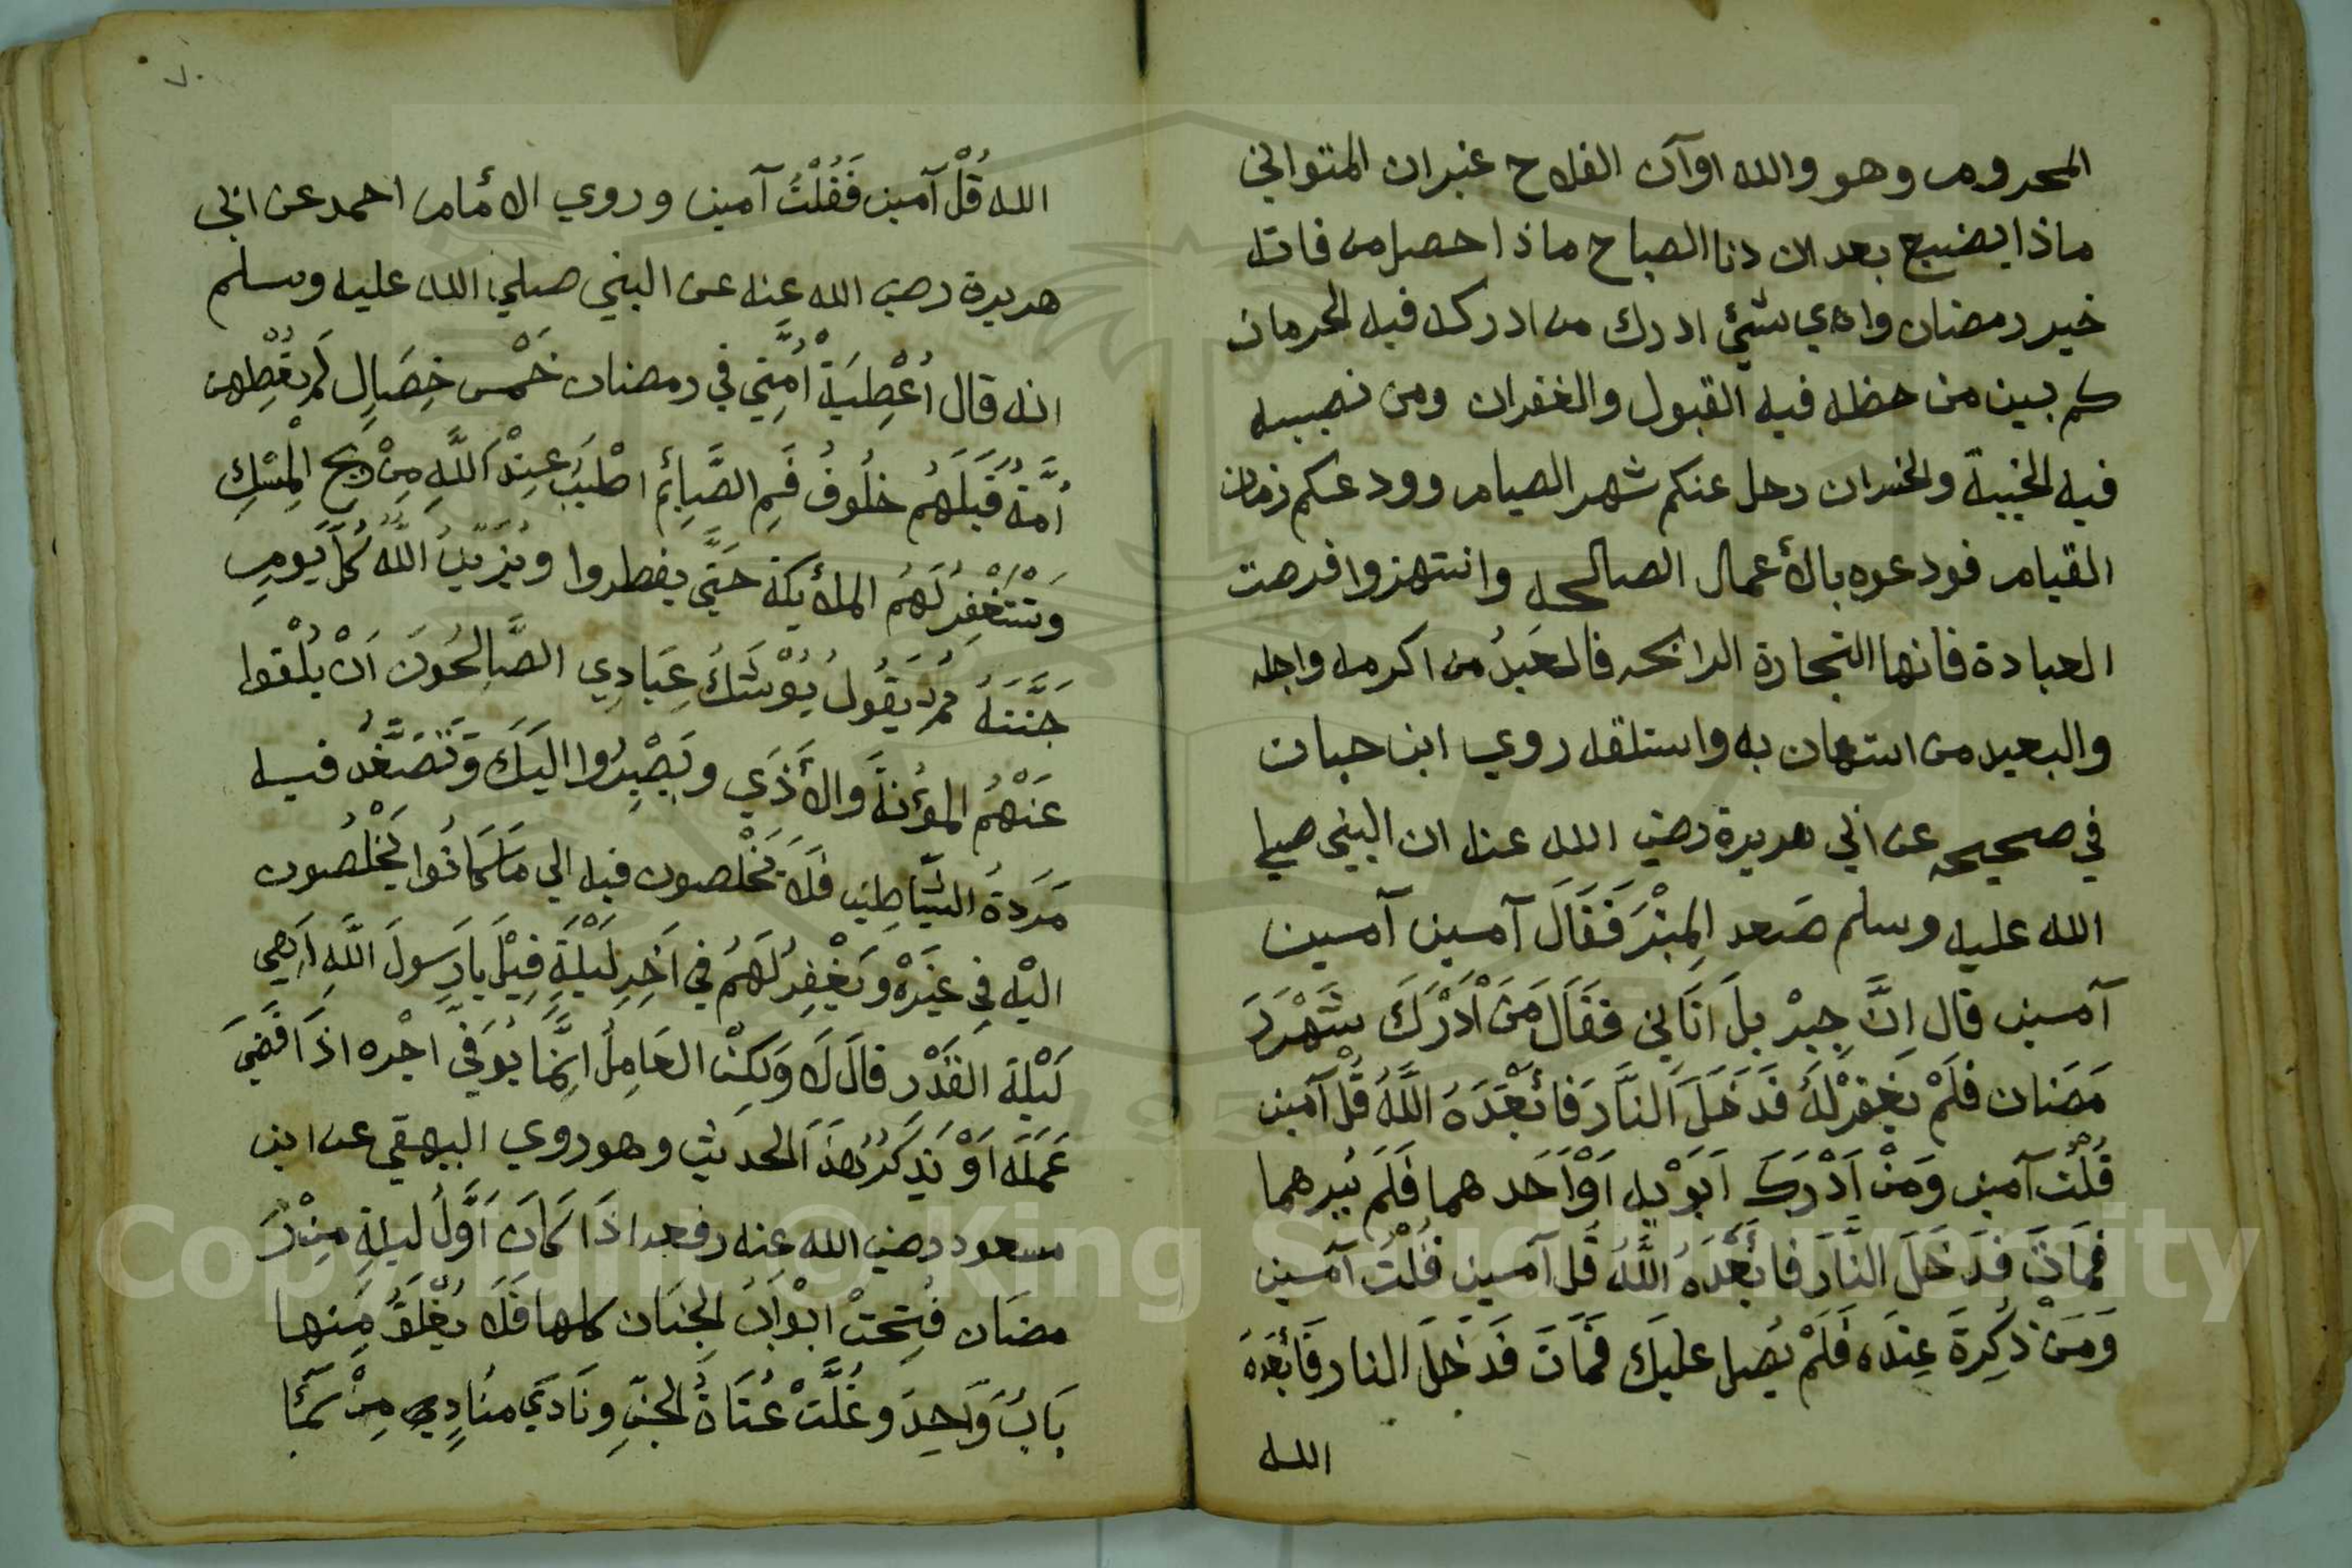 المحروم وهو والله اوآن الفلاح غبران المتواني
ماذا يضيع بعد ان دنا الصباح ماذا حصل من فاته
خير رمضان واي شيئ ادرك من ادركه فيه الحرمان
كم بين من حظه فيه القبول والغفران ومن نصيبه
فيه الخيبة والخسران رحل عنكم شهر الصيام وودعكم زمان
القيام فودعوه بالأعمال الصالحه وانتهزوا فرصت
العبادة فانها التجارة الرابحه فالعيد من اكرمه واجله
والبعيد من استهان به واستلقله روي ابن حبان
في صحيحه عن ابي هريرة رضي الله عنه ان النبي صلي
الله عليه وسلم صَعد المِنْبَرَ فَقَالَ آمين آمين
آمين قال اِنَّ جِبْرِيلَ اَتَاني فقَالَ مَنْ اَدْرَكَ شَهْرَرَ
مَضَان فلَمْ يَغْفِرْ لَهُ فَدَخَلَ النَّارَ فَأَبْعَدَهُ اللَّهُ قُلْ آمين
قُلْتُ آمين وَمَنْ اَدْرَكَ اَبَوَيْهِ اَوْ اَحَدهما فَلَمْ يَبِرهما
فمَاتَ فَدَخَلَ النَّارَ فابْعَدَهُ اللَّهُ قُل آمين قُلْتُ آمين
وَمَنْ ذُكِرةَ عِنْدَه فَلَمْ يُصل عليكَ فمَاتَ فَدَخَلَ النار فَأَبْعَدَهُ
الله
٧٠
الله قُلْ آمين فَقُلْتُ آمين وروي الأمام احمد عن ابي
هريرة رضي الله عنه عن النبي صلي الله عليه وسلم
انه قال اُعْطِيَةْ اُمَّتِي في رمضان خَمْس خِصَالٍ لَم تعْطهن
اُمَّةُ قَبْلَهُم خلُوفُ فَمِ الصَّائِمُ اطْيَبُ عِنْدَ اللَّهِ مِنْ رِيحِ الْمِسْكِ
وَتَسْتَغْفِرُ لَهُمُ الملأيكة حَتَّي يفطروا ويُزَيِّنُ اللَّه كُلَّ يَومٍ
جَنَّتَهُ ثم يَقُولُ يُوْشَكُ عِبَادِي الصَّالِحُونَ اَنْ يُلْقوا
عَنْهُمُ المؤُنَةَ وَالأَذَي ويَصِيرُوا اليَكَ وَتُصَفَّدُ فيه
مَرَدَةُ الشَّيَاطِين فَلَا يَخْلصون فيه الي مَا كانُوا يَخْلُصون
اليْه فِي غيَرْه ويَغْفِرُ لَهُمُ في اَخِرِ لَيْلَةِ قِيْلَ يَا رَسولَ اللَّهِ اَهِيَ
لَيْلَة القَدْر قالَ لَا وَلَكِنْ العَامِلُ اِنَّمَا يُوَفَّي اجْره اذَا قَضَيَ
عَمَلَه اَوْ نَذكرُ هَذَا الحديث وهو روي البيهقي عن ابن
مسعود رضي الله عنه رفعه اذَا كَانَ اَوَّلُ ليلةِ مِنْ رَ
مضَان فُتِحَتْ ابْوَابُ الجنَان كلها فَلَا يُغْلَقُ مِنها
بَابُ وَاحِدَ وغُلَّتْ عُتَاةُ الجنِّ ونَادَي منَادِي مِنْ سَمَا
Copyright © King Saud University